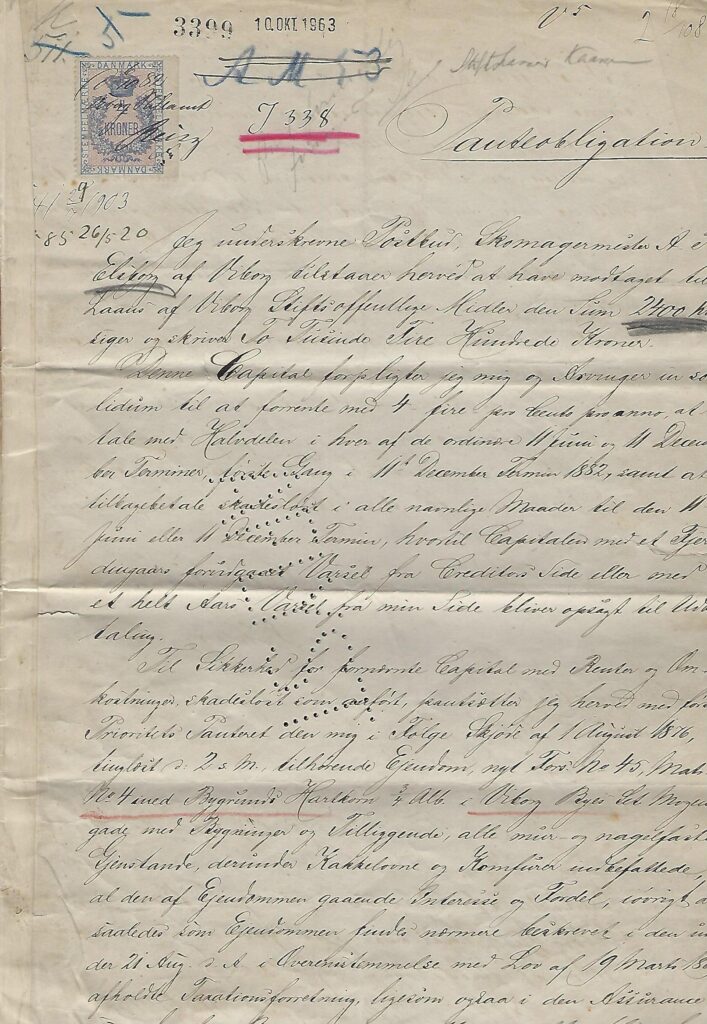 3399 10.OKT.1963
5
A M 53
J 338
DANMARK
KRONER
DANMARK
Panteobligation
1903
85 26/5 20
Jeg underskrevne Postbud, Skomagermester A
Elsborg af Viborg tilstaaer herved at have modtaget til
Laans af Viborg Stifts offentlige Midler den Sum 2400 Kr
siger og skriver To Tusinde Fire Hundrede Kroner.
Denne Capital forpligter jeg mig og Arvinger in so
lidum til at forrente med 4 fire pro Cento pro anno, at
tale med Halvdelen i hver af de ordinære 11 Juni og 11 Decem
ber Terminer, første Gang i 11te December Termin 1882, samt at
tilbagebetale skadesløst i alle navnlige Maader til den 11
Juni eller 11 December Termin, hvortil Capitalen med et Fjer
dingaars forudgaaet Varsel fra Creditors Side eller med
et helt Aars Varsel fra min Side bliver opsagt til Udbe
taling.
Til Sikkerhed for fornævnte Capital med Renter og Om
kostninger, skadesløst som anført, pantsætter jeg herved med før
Prioritets Panteret den mig i Følge Skjøde af 1 August 1876,
tinglæst d: 2 s. M., tilhørende Ejendom, nyt Fors: No 45, Matr
No 4 med Bygrunds Hartkorn 3/4 Alb. i Viborg Byes Set. Mogens
gade med Bygninger og Tilliggende, alle mur- og nagelfaste
Gjenstande, derunder Kakkelovne og Komfurer indbefattede,
al den af Ejendommen gaaende Interesse og Fordel, iøvrigt a
saaledes som Ejendommen findes nærmere beskrevet i den un
der 21 Aug. d. A. i Overensstemmelse med Lov af 19 Marts 18
afholdte Taxationsforretning, ligesom ogsaa i den Assurance